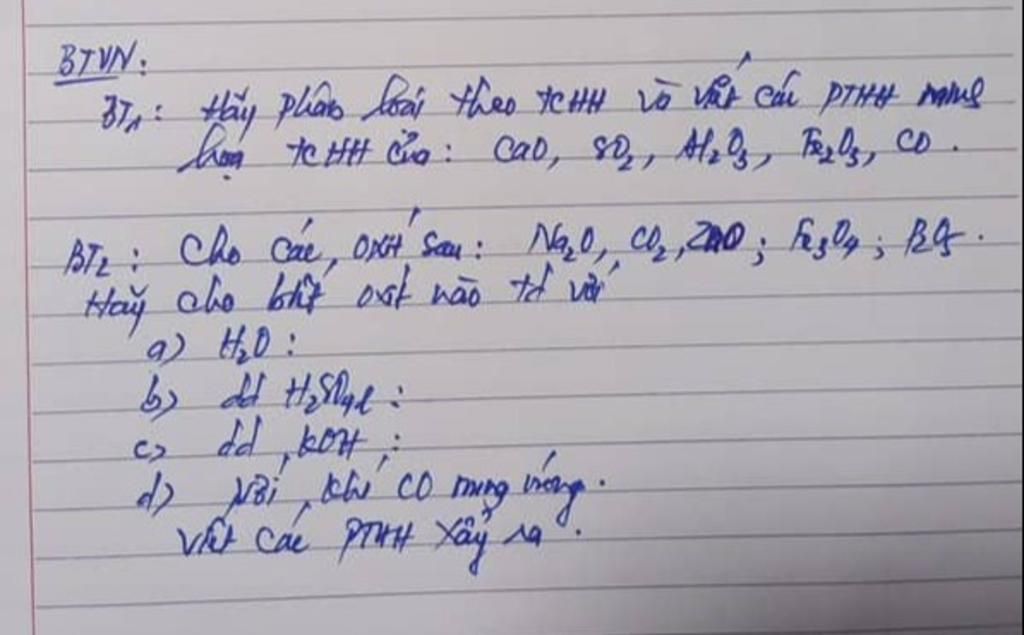 BTVN:
BT1: Hãy phân loại theo TCHH và viết các PTHH minh
họa TCHH của: CaO, SO2, Al2O3, Fe2O3, CO.
BT2: Cho các oxit sau: Na2O, CO2, ZnO; Fe3O4; P2O5.
Hãy cho biết oxit nào td với
a) H2O:
b) dd H2SO4l:
c) dd KOH:
d) Với khí CO nung nóng.
Viết các PTHH xảy ra.